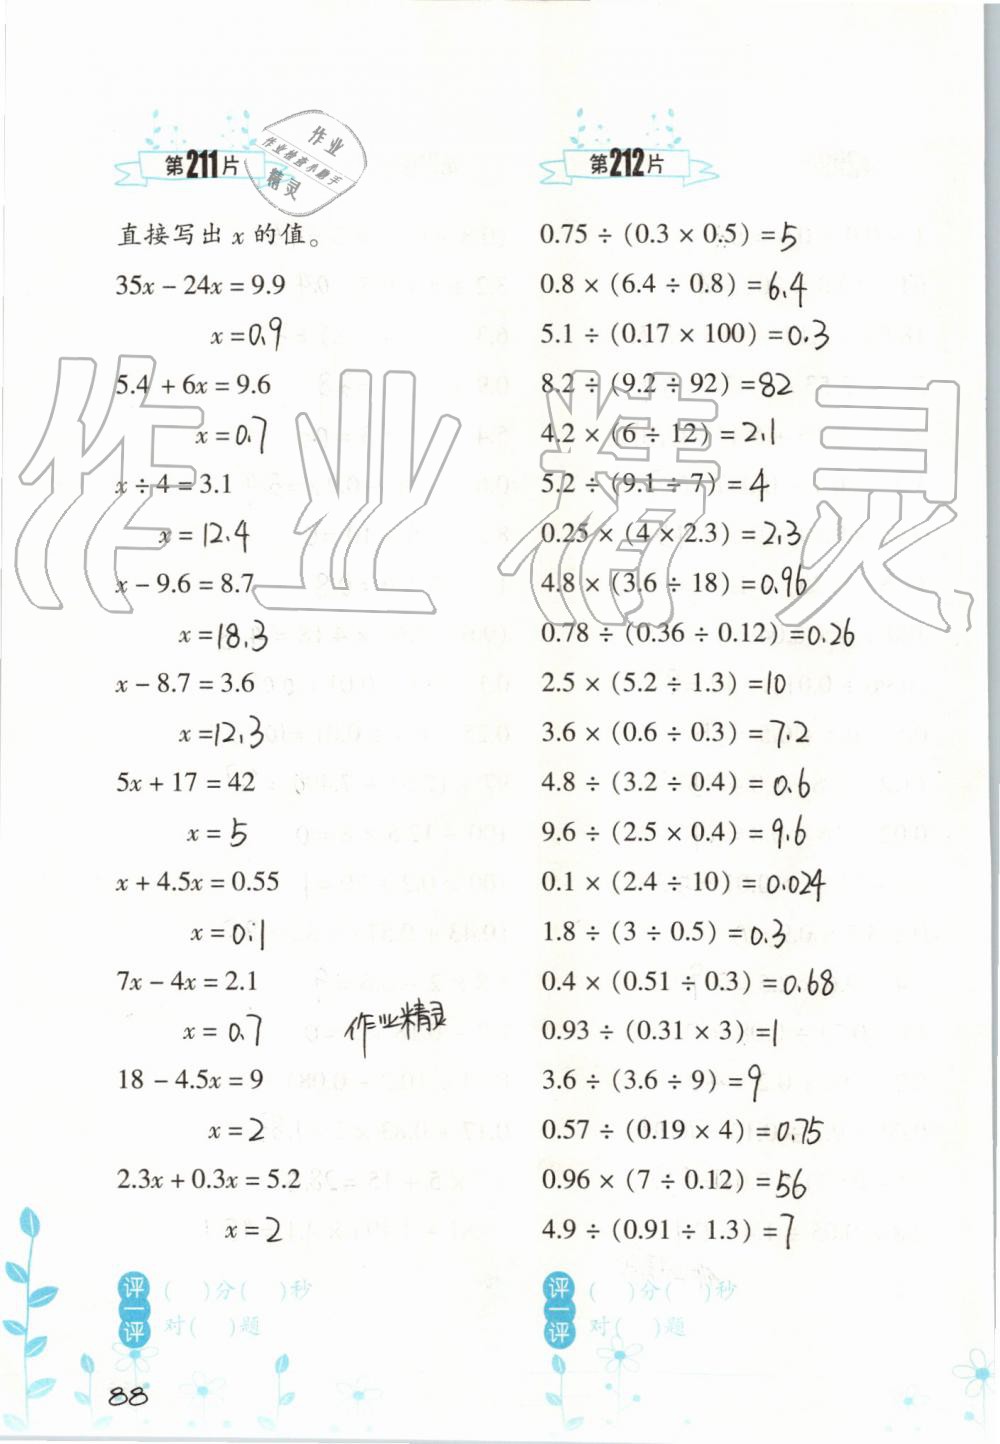 第211片
作业
作业检查小助手
精灵
直接写出 x 的值。
35x − 24x = 9.9
x = 0.9
5.4 + 6x = 9.6
x = 0.7
x ÷ 4 = 3.1
x = 12.4
x − 9.6 = 8.7
x = 18.3
x − 8.7 = 3.6
x = 12.3
5x + 17 = 42
x = 5
x + 4.5x = 0.55
x = 0.1
7x − 4x = 2.1
x = 0.7
作业精灵
18 − 4.5x = 9
x = 2
2.3x + 0.3x = 5.2
x = 2
评一评
( )分( )秒
对( )题
88
第212片
0.75 ÷ (0.3 × 0.5) = 5
0.8 × (6.4 ÷ 0.8) = 6.4
5.1 ÷ (0.17 × 100) = 0.3
8.2 ÷ (9.2 ÷ 92) = 82
4.2 × (6 ÷ 12) = 2.1
5.2 ÷ (9.1 ÷ 7) = 4
0.25 × (4 × 2.3) = 2.3
4.8 × (3.6 ÷ 18) = 0.96
0.78 ÷ (0.36 ÷ 0.12) = 0.26
2.5 × (5.2 ÷ 1.3) = 10
3.6 × (0.6 ÷ 0.3) = 7.2
4.8 ÷ (3.2 ÷ 0.4) = 0.6
9.6 ÷ (2.5 × 0.4) = 9.6
0.1 × (2.4 ÷ 10) = 0.024
1.8 ÷ (3 ÷ 0.5) = 0.3
0.4 × (0.51 ÷ 0.3) = 0.68
0.93 ÷ (0.31 × 3) = 1
3.6 ÷ (3.6 ÷ 9) = 9
0.57 ÷ (0.19 × 4) = 0.75
0.96 × (7 ÷ 0.12) = 56
4.9 ÷ (0.91 ÷ 1.3) = 7
评一评
( )分( )秒
对( )题
作业精灵